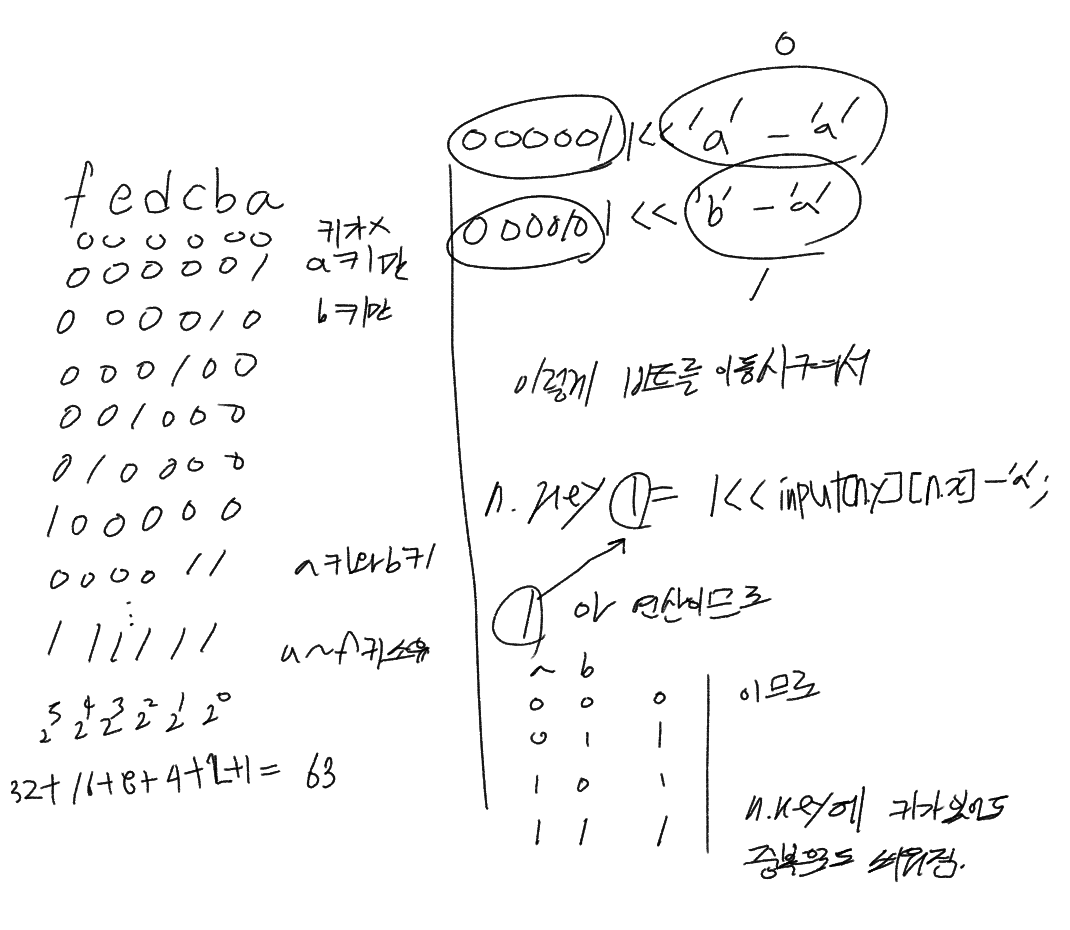 f e d c b a
0 0 0 0 0 0 키가X
0 0 0 0 0 1 a키만
0 0 0 0 1 0 b키만
0 0 0 1 0 0
0 0 1 0 0 0
0 1 0 0 0 0
1 0 0 0 0 0
0 0 0 0 1 1 a키와b키
⋮
1 1 1 1 1 1 a~f키소유
2⁵ 2⁴ 2³ 2² 2¹ 2⁰
32+16+8+4+2+1= 63
0
000001 1<< 'a' - 'a'
000010 1 << 'b' - 'a'
1
이렇게 비트를 이동시켜서
n.key |= 1<< input[n.y][n.x] - 'a';
| or 연산이므로
a b
0 0 0 이므로
0 1 1
1 0 1
1 1 1
n.key에 키가있어도
중복으로 씌워짐.